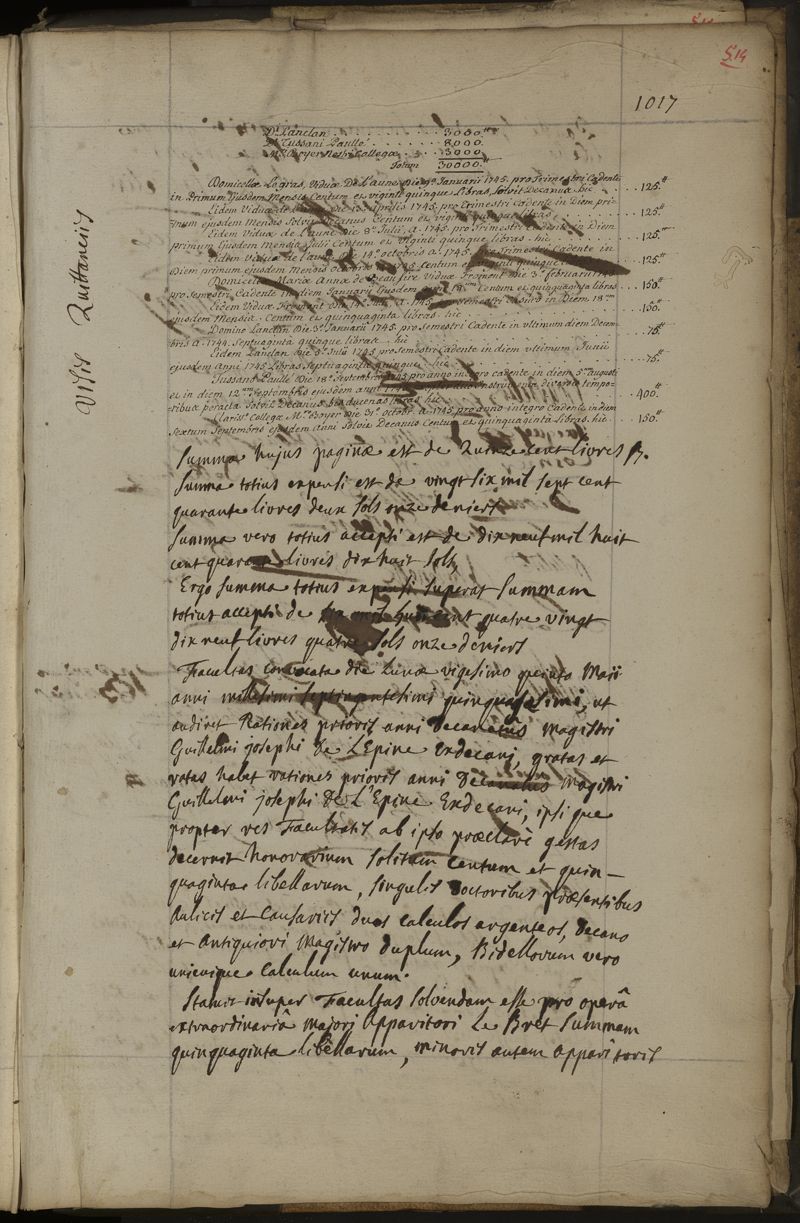 514
1017
D. Lanclan . . . . . . . . . . 3000
Tussani Paulle . . . . . . . 8000
Boyer nostr. Collegæ . . . 3000
Totum 30000
Visis Quittanciis
Domicellæ Legras, Viduæ De l'aunes Die 9ª Januarii 1745. pro Trimestri Cadente
in Primum Ejusdem Mensis Centum et viginti quinque Libras, Solvit Decanus. hic . . . 125.
Eidem Viduæ de Aprilis 1745. pro Trimestri Cadente in Diem pri-
mum ejusdem Mensis Solvit Decanus Centum et viginti quinque libras . . . 125.
Eidem Viduæ de l'aunes Die 8ª Julii a. 1745. pro Trimestri Cadente in Diem
primum Ejusdem Mensis Julii Centum et Viginti quinque libras. hic . . . 125.
Eidem Viduæ de l'aunes Die 14ª octobris a. 1745. pro Trimestri Cadente in
Diem primum ejusdem Mensis octobris Centum et viginti quinque . . . 125.
Domicellæ Mariæ Annæ de Beaufire Viduæ Froment Die 3ª februarii 1745
pro Semestri Cadente in diem Januarii Ejusdem Centum et quinquaginta libras . . . 150.
Eidem Viduæ Froment Die a. 1745. pro Semestri elapso in Diem 18
ejusdem Mensis. Centum et quinquaginta libras. hic . . . 150.
Domino Lanclan Die 3ª Januarii 1745. pro semestri Cadente in ultimum diem Decem-
bris a. 1744. Septuaginta quinque libras. hic . . . 75.
Eidem Lanclan Die 3ª Julii 1745 pro semestri cadente in diem ultimum Junii
ejusdem Anni 1745 Libras Septuaginta quinque. hic . . . 75.
Tussano Paulle Die 18ª Septembris 1745 pro anno integro cadente in diem 5 augusti
et in diem 12 Septembris ejusdem anni diverso tempo-
ribus peracta Solvit Decanus bis ducenas libras. hic . . . 400.
Clariss. Collegæ M. Boyer Die 31ª octobr. a. 1745 pro anno integro Cadente in diem
Sextum Septembris ejusdem Anni Solvit Decanus Centum et quinquaginta Libras. hic . . . 150.
Summa hujus paginæ est de Quinze cent livres
Summa totius expensi est de vingt six mil sept cent
quarante livres deux sols onze deniers
Summa vero totius accepti est de dix neuf mil huit
cent quarante livres dix huit sols
Ergo Summa totius expensi superat Summam
totius accepti de six mil huit cent quatre vingt
dix neuf livres quatre sols onze deniers
Facultas convocata die Lunæ vigesimo quinto Maii
anni millesimi septingentesimi quinquagesimi, ut
audiret Rationes prioris anni decanatus Magistri
Guillelmi josephi De L'Epine Exdecani, gratas et
ratas habet rationes prioris anni Decanatus Magistri
Guillelmi josephi De L'Epine Exdecani, ipsique
propter res Facultatis ab ipso præclarè gestas
decernit honorarium solitum centum et quin-
quaginta libellarum, singulis Doctoribus præsentibus
Aulicis et Causariis duos calculos argenteos, Decano
et Antiquiori Magistro duplum, Bidellorum vero
unicuique Calculum unum.
Statuit insuper Facultas Solvendam esse pro operâ
extraordinariâ majori Apparitori Le Bret Summam
quinquaginta libellarum, minoris autem Apparitoris